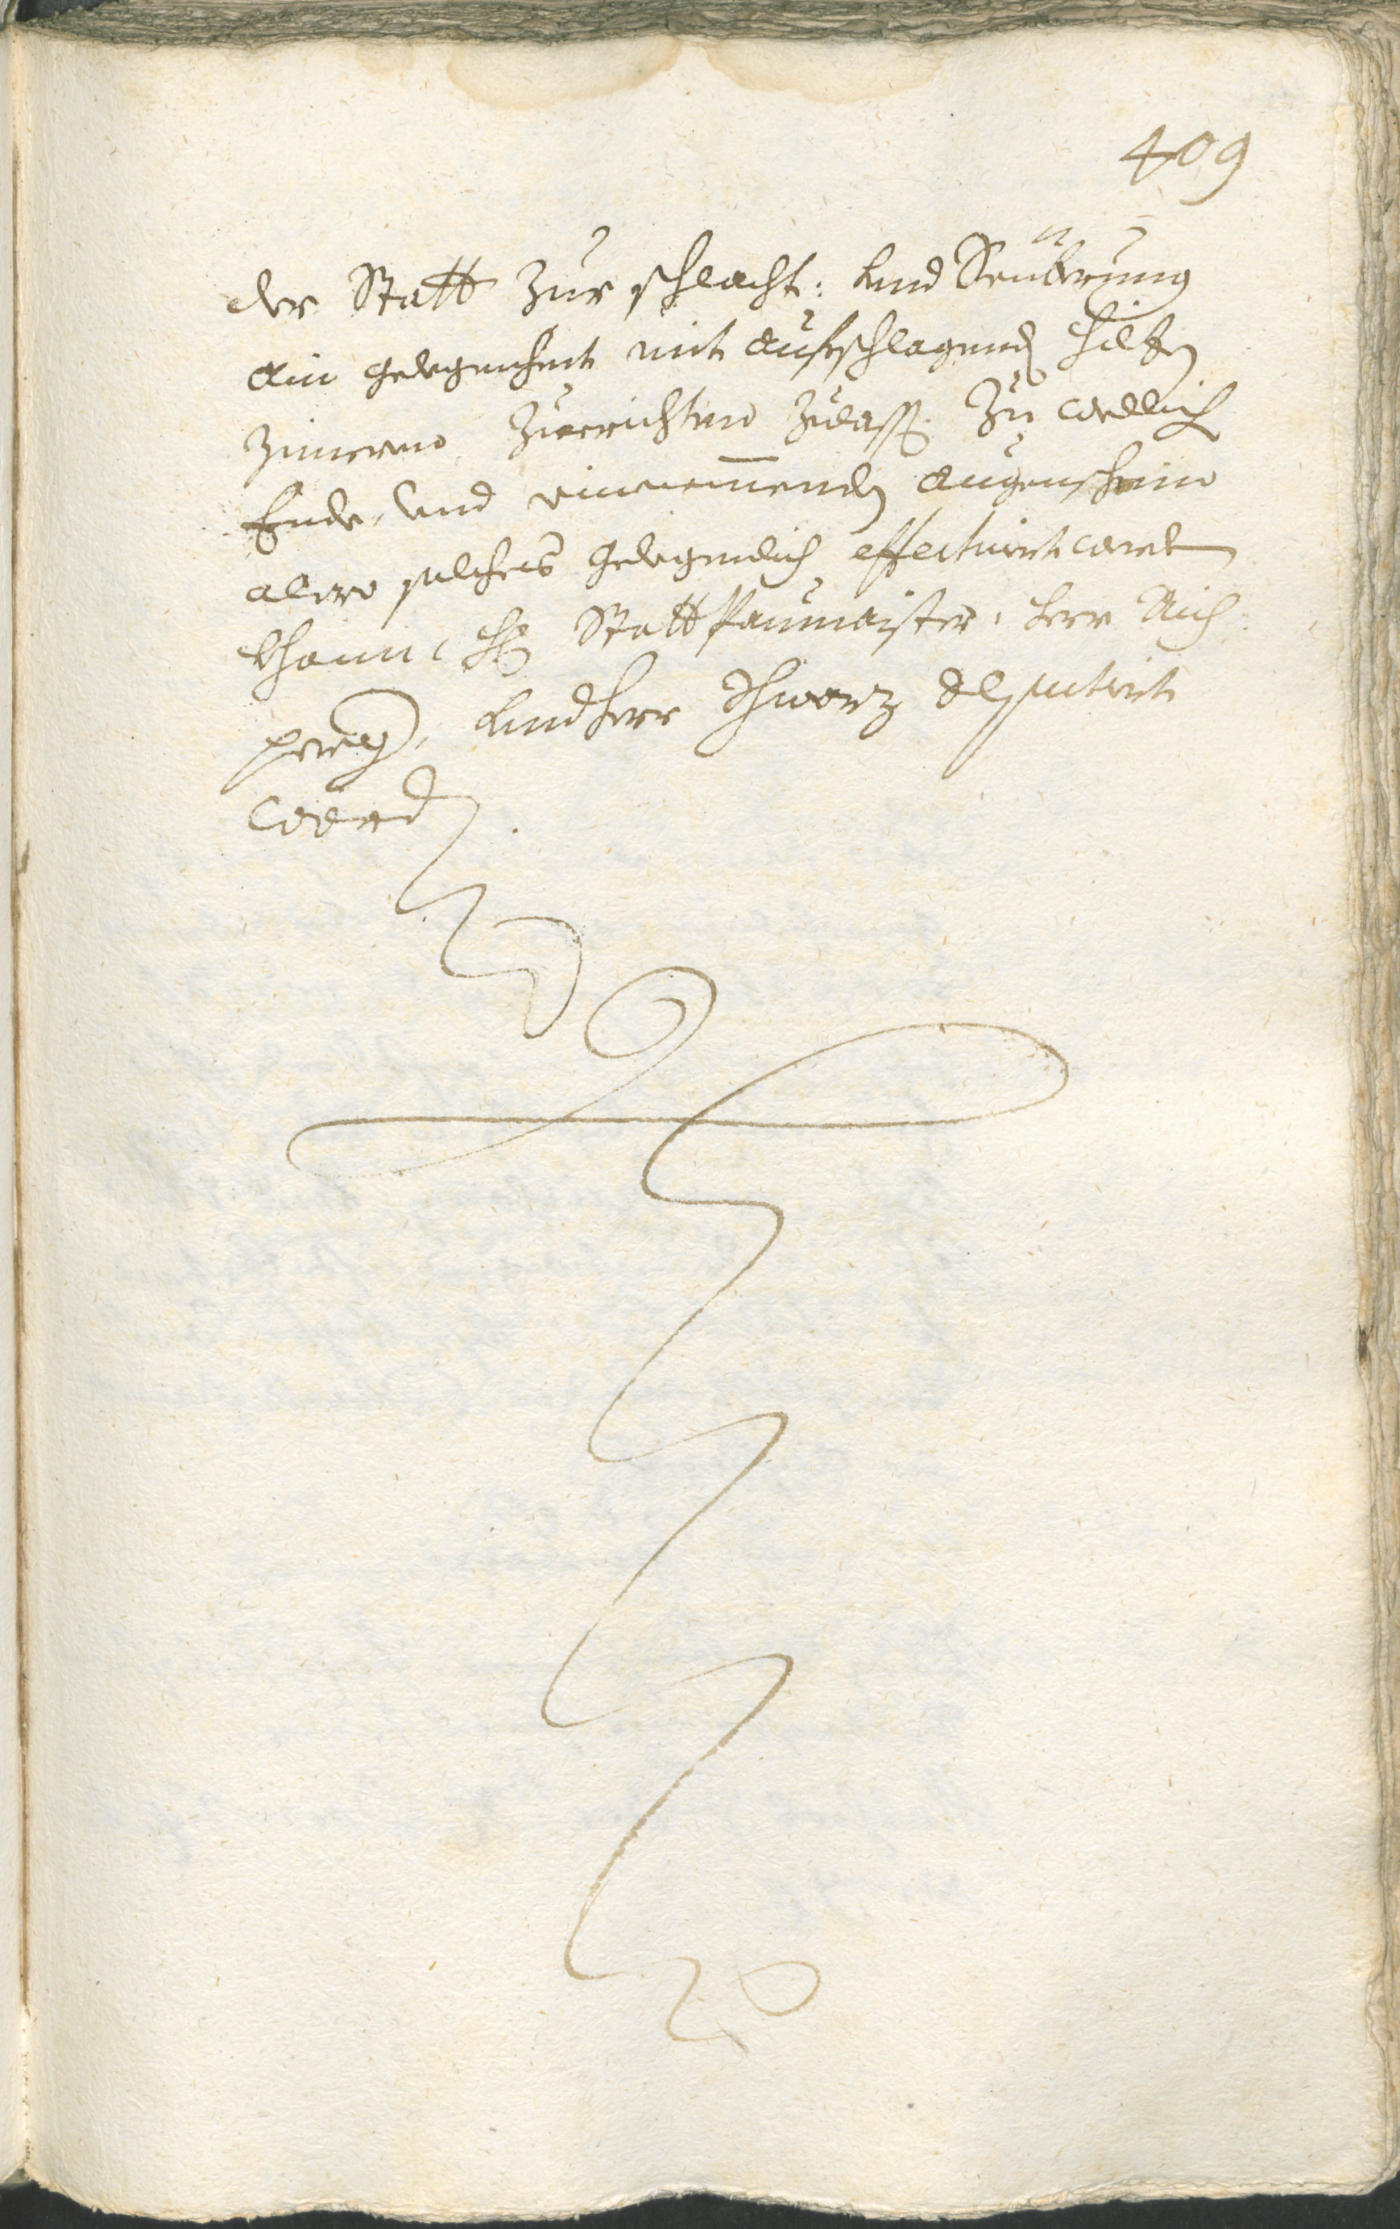 409
der Statt zur schlacht: und Seüberung
ain gelegenheit mit aufschlagendt
Zimern zuerrichten zulasß. Zu wellich
Ende, und einnemmenden augenschein
alwo solches gelegenlich effectuirt werd
khann, H: Stattpaumaister, herr Aich
perg, und herr Schwarz deputirt
word.